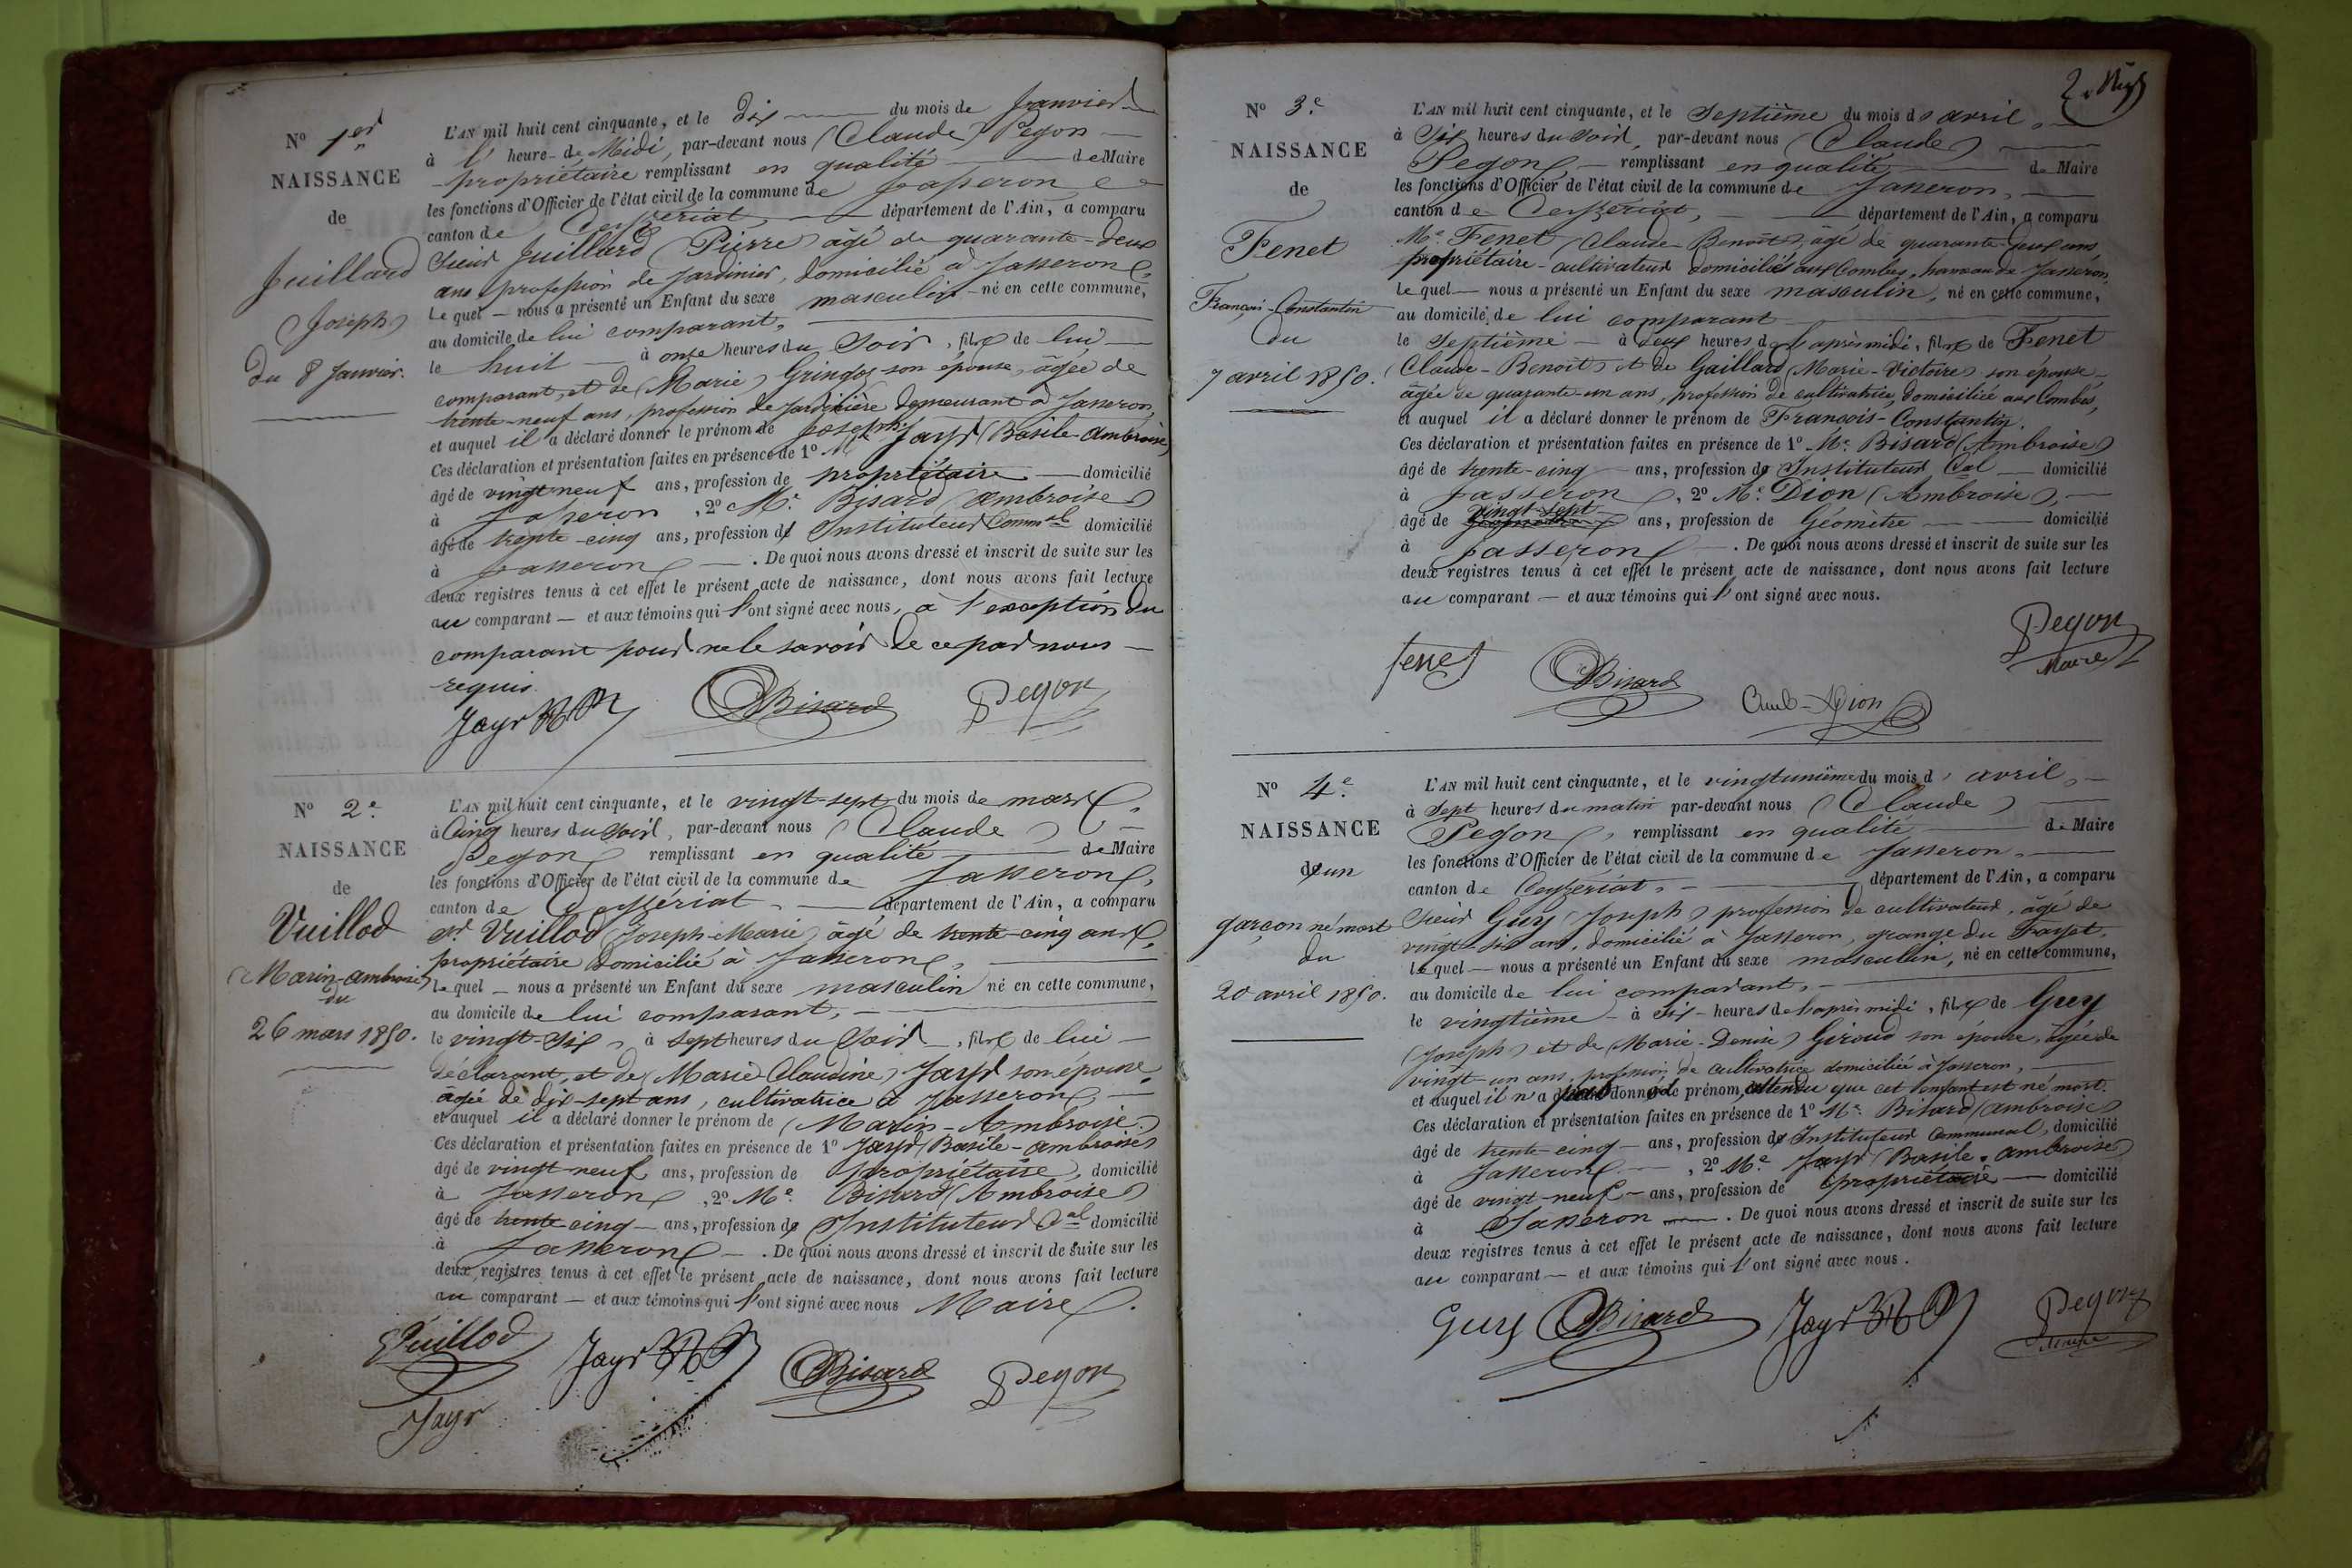 N° 1er
NAISSANCE
de
Juillard
(Joseph)
du 8 Janvier.
L'AN mil huit cent cinquante, et le dix du mois de Janvier
à l' heure de Midi, par-devant nous (Claude) Pegon
propriétaire remplissant en qualité de Maire
les fonctions d'Officier de l'état civil de la commune de Jasseron
canton de Ceyzériat, département de l'Ain, a comparu
Sieur Juillard (Pierre) âgé de quarante-deux
ans profession de Jardinier, domicilié à Jasseron,
Lequel — nous a présenté un Enfant du sexe masculin né en cette commune,
au domicile de lui comparant,
le huit à onze heures du Soir, fils de lui
comparant, et de (Marie) Gringoz son épouse, âgée de
trente-neuf ans, profession de Jardinière demeurant à Jasseron,
et auquel il a déclaré donner le prénom de Joseph.
Ces déclaration et présentation faites en présence de 1° Mr Jayr (Basile-Ambroise)
âgé de vingt neuf ans, profession de propriétaire domicilié
à Jasseron, 2° Mr. Bisard (Ambroise)
âgé de trente-cinq ans, profession de Instituteur Commal domicilié
à Jasseron — . De quoi nous avons dressé et inscrit de suite sur les
deux registres tenus à cet effet le présent acte de naissance, dont nous avons fait lecture
au comparant — et aux témoins qui l'ont signé avec nous, à l'exception du
comparant pour ne le savoir de ce par nous
requis.
Jayr BA Bisard Pegon
N° 2e
NAISSANCE
de
Vuillod
(Marin-Ambroise)
du
26 mars 1850.
L'AN mil huit cent cinquante, et le vingt-sept du mois de mars,
à Cinq heures du Soir, par-devant nous (Claude)
Pegon remplissant en qualité de Maire
les fonctions d'Officier de l'état civil de la commune de Jasseron,
canton de Ceyzériat département de l'Ain, a comparu
Sr Vuillod (Joseph-Marie) âgé de trente-cinq ans,
propriétaire domicilié à Jasseron,
Lequel — nous a présenté un Enfant du sexe masculin né en cette commune,
au domicile de lui comparant,
le vingt-six, à sept heures du Soir, fils de lui
déclarant, et de (Marie Claudine) Jayr son épouse,
âgée de dix-sept ans, cultivatrice à Jasseron,
et auquel il a déclaré donner le prénom de (Marin-Ambroise.)
Ces déclaration et présentation faites en présence de 1° Jayr (Basile-Ambroise)
âgé de vingt-neuf ans, profession de propriétaire, domicilié
à Jasseron, 2° Mr. Bisard (Ambroise)
âgé de trente cinq — ans, profession de Instituteur Cal domicilié
à Jasseron — . De quoi nous avons dressé et inscrit de suite sur les
deux registres tenus à cet effet le présent acte de naissance, dont nous avons fait lecture
au comparant — et aux témoins qui l'ont signé avec nous Maire.
Vuillod Jayr BA Bisard Pegon
Jayr
2.
N° 3e
NAISSANCE
de
Fenet
François-Constantin
du
7 avril 1850.
L'AN mil huit cent cinquante, et le Septième du mois d'avril,
à Six heures du Soir, par-devant nous (Claude)
Pegon, remplissant en qualité de Maire
les fonctions d'Officier de l'état civil de la commune de Jasseron,
canton de Ceyzériat, département de l'Ain, a comparu
Mr. Fenet (Claude-Benoît) âgé de quarante-deux ans
propriétaire-cultivateur domicilié aux Combes, hameau de Jasseron,
Lequel — nous a présenté un Enfant du sexe masculin, né en cette commune,
au domicile de lui comparant
le Septième — à deux heures de l'après midi, fils de Fenet
(Claude-Benoît) et de Gaillard (Marie-Victoire) son épouse
âgée de quarante-un ans, profession de cultivatrice, domiciliée aux Combes,
et auquel il a déclaré donner le prénom de François-Constantin.
Ces déclaration et présentation faites en présence de 1° Mr. Bisard (Ambroise)
âgé de trente-cinq ans, profession de Instituteur Cal domicilié
à Jasseron, 2° Mr. Dion (Ambroise),
âgé de vingt-sept ans, profession de Géomètre domicilié
à Jasseron — . De quoi nous avons dressé et inscrit de suite sur les
deux registres tenus à cet effet le présent acte de naissance, dont nous avons fait lecture
au comparant — et aux témoins qui l'ont signé avec nous.
Pegon
Maire
fenet Bisard Amb-Dion
N° 4e
NAISSANCE
d'un
garçon né mort
du
20 avril 1850.
L'AN mil huit cent cinquante, et le vingtunième du mois d'avril,
à Sept heures du matin par-devant nous (Claude)
Pegon, remplissant en qualité de Maire
les fonctions d'Officier de l'état civil de la commune de Jasseron,
canton de Ceyzériat, département de l'Ain, a comparu
Sieur Guy (Joseph) profession de cultivateur, âgé de
vingt-six ans, domicilié à Jasseron, grange du Fayet,
Lequel — nous a présenté un Enfant du sexe masculin, né en cette commune,
au domicile de lui comparant,
le vingtième — à Six — heures de l'après midi, fils de Guy
(Joseph) et de (Marie-Denise) Giroud son épouse, âgée de
vingt-un ans, profession de cultivatrice domiciliée à Jasseron,
et auquel il n'a donné de prénom, attendu que cet enfant est né mort.
Ces déclaration et présentation faites en présence de 1° Mr. Bisard (Ambroise)
âgé de trente-cinq — ans, profession de Instituteur Communal, domicilié
à Jasseron — , 2° Mr. Jayr (Basile-Ambroise)
âgé de vingt-neuf — ans, profession de propriétaire domicilié
à Jasseron — . De quoi nous avons dressé et inscrit de suite sur les
deux registres tenus à cet effet le présent acte de naissance, dont nous avons fait lecture
au comparant — et aux témoins qui l'ont signé avec nous.
Guy Bisard Jayr BA Pegon
Maire